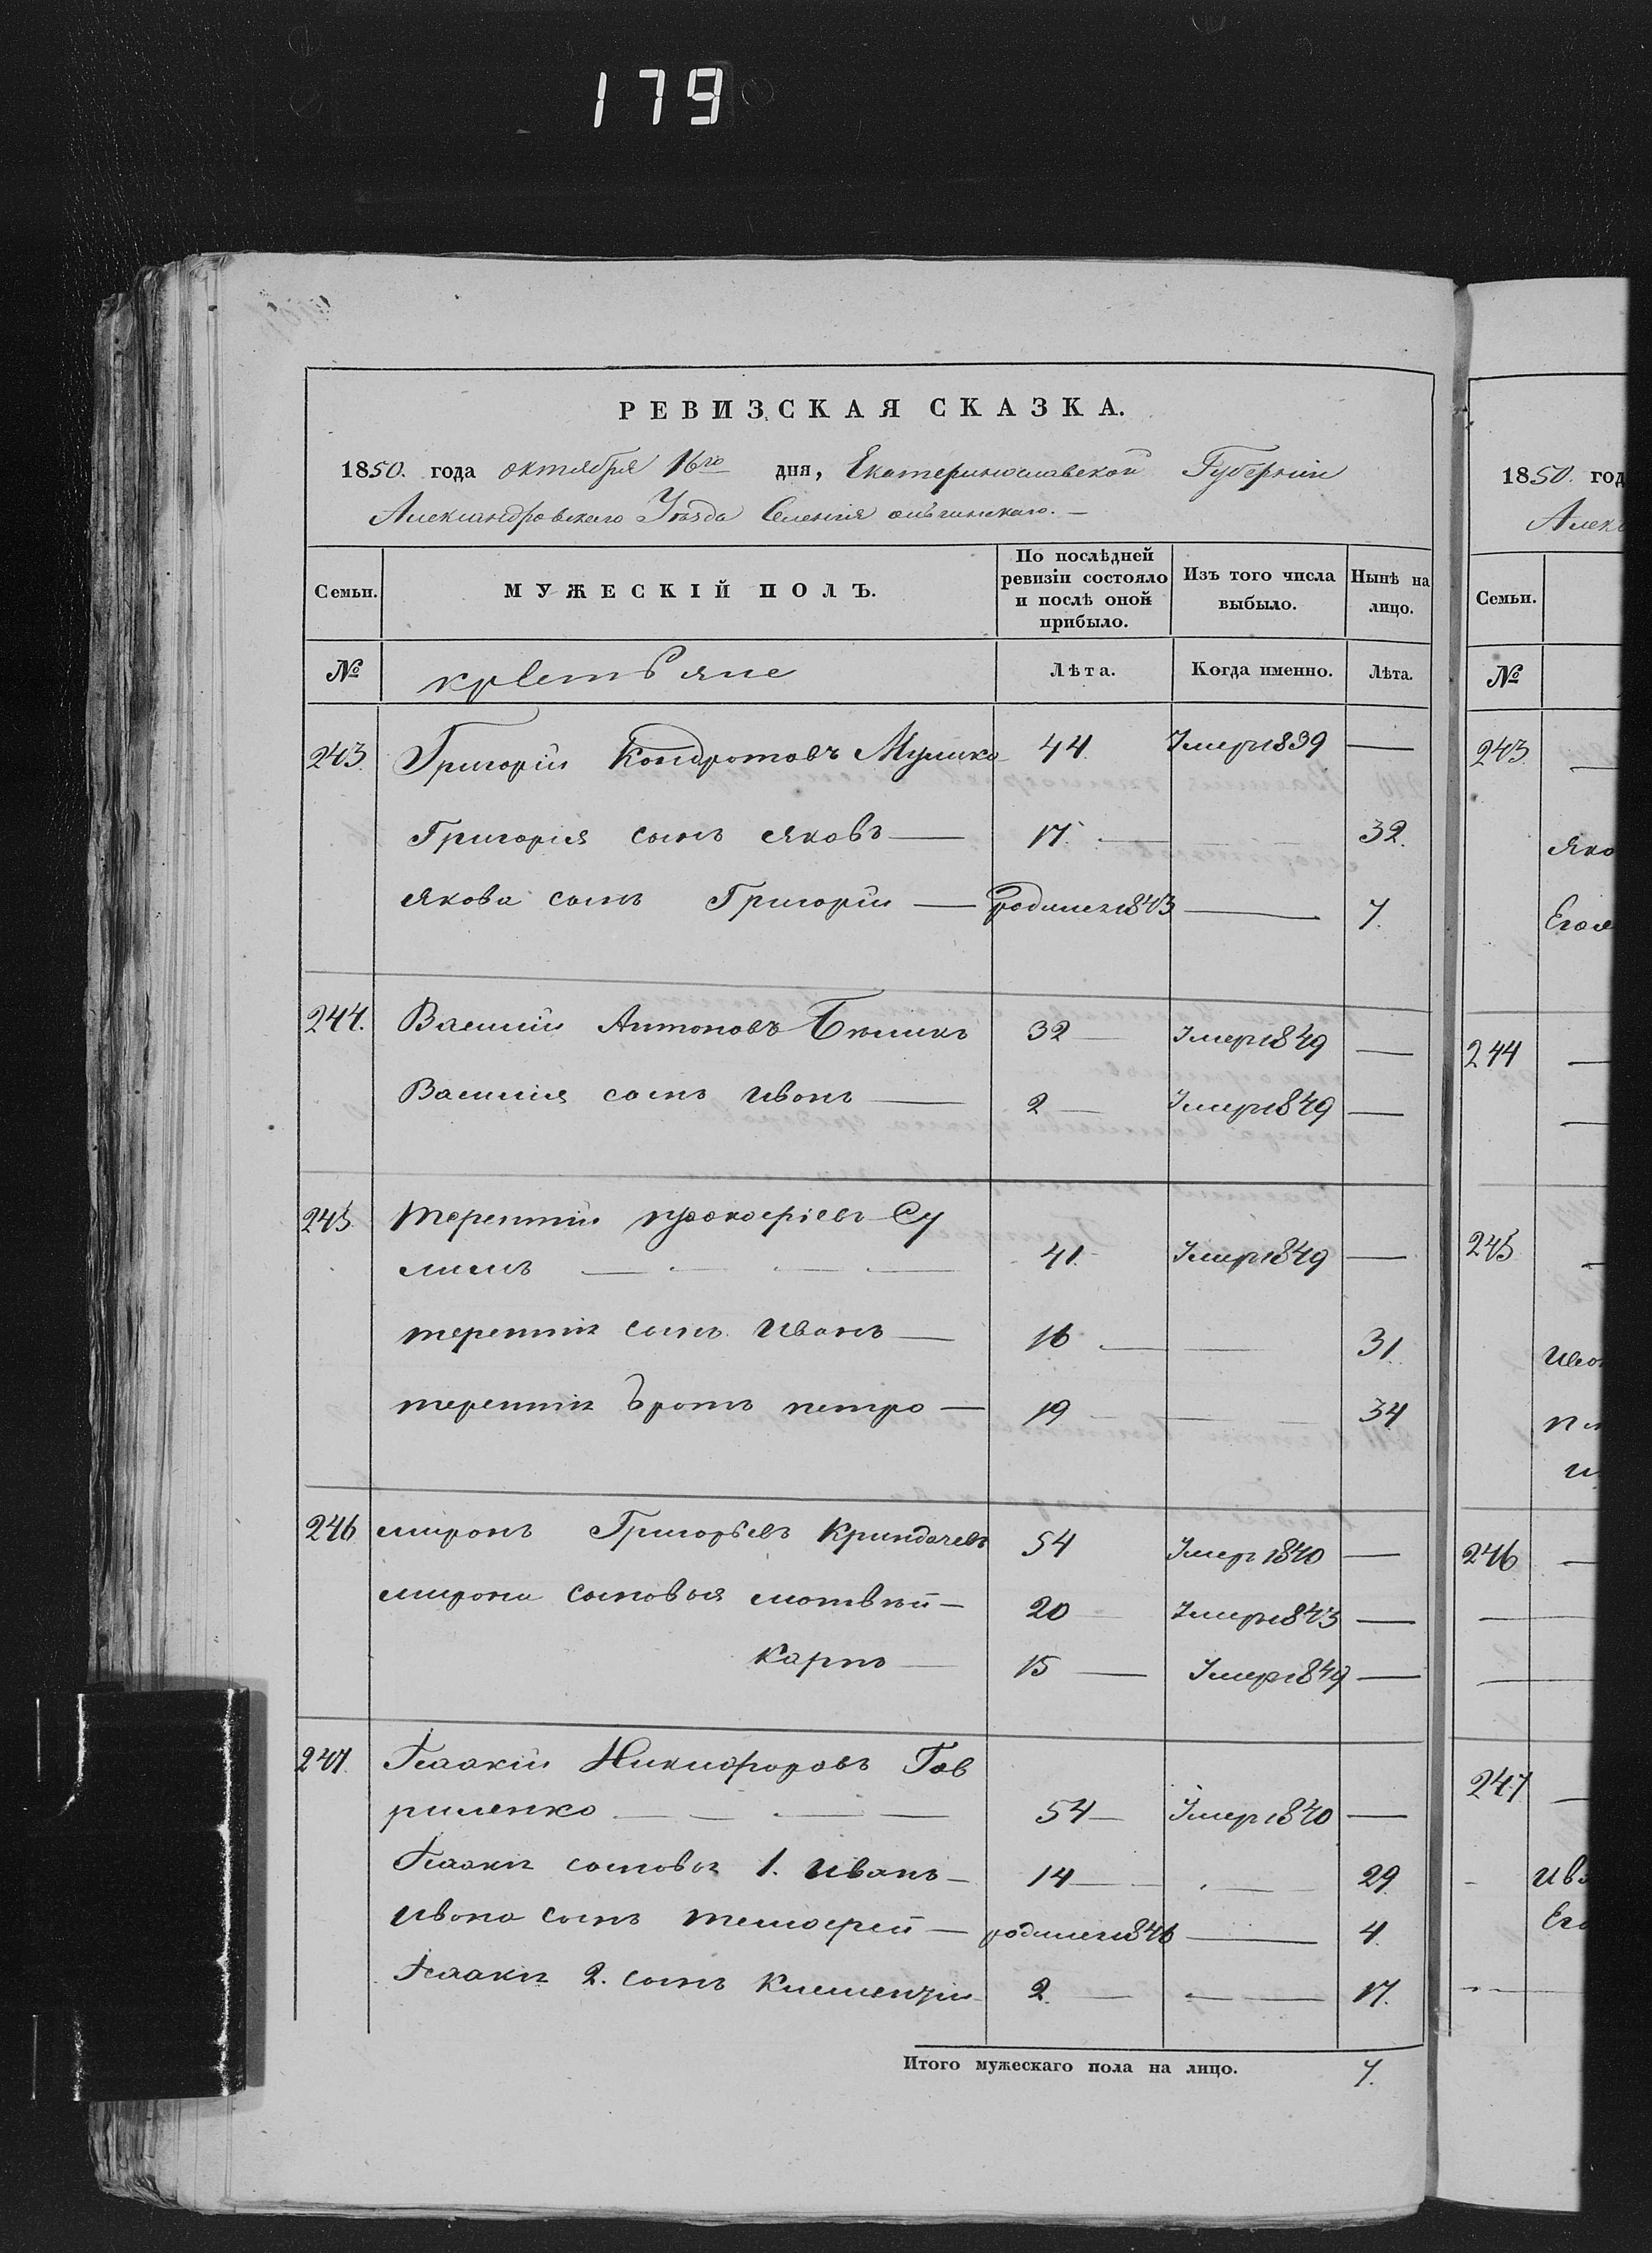 179
РЕВИЗСКАЯ СКАЗКА.
1850. года октября 16го дня, Екатеринославской Губернии
Александровскаго Уѣзда Селенія ольгинскаго. —
Семьи. МУЖЕСКІЙ ПОЛЪ. По послѣдней ревизіи состояло и послѣ оной прибыло. Изъ того числа выбыло. Нынѣ на лицо.
№ крестьяне Лѣта. Когда именно. Лѣта.
243. Григорій Кондратовъ 44. Умеръ 1839 —
Григорія сынъ Яковъ — 17. — 32.
Якова сынъ Григорій — родился 1843 — 7.
244. Василій Антоновъ 32 — Умеръ 1849 —
Василія сынъ Иванъ — 2 — Умеръ 1849 —
245. терентій прокофіевъ Су
лимъ — 41. Умеръ 1849 —
терентія сынъ Иванъ — 16 — 31.
терентія братъ петро — 19 — 34
246 миронъ Григорьевъ Криндачевъ 54 Умеръ 1840 —
мирона сыновья матвѣй — 20 — Умеръ 1843 —
Карпъ — 15 — Умеръ 1849 —
247. Исаакій Никифоровъ Гав
риленко — 54 — Умеръ 1840 —
Исаакія сыновья 1. Иванъ — 14 — 29.
Ивана сынъ тимофей — родился 1846 — 4.
Исаакія 2. сынъ Климентій 2. — 17.
Итого мужескаго пола на лицо. 7.
1850. год
Алекс
Семьи.
№
243.
Яко
Его
244
245
Иван
246
247
Ива
Его